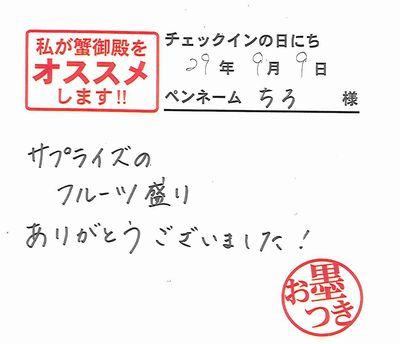 私が蟹御殿を
オススメ
します!!
チェックインの日にち
29年9月9日
ペンネーム ちろ 様
サプライズの
フルーツ盛り
ありがとうございました!
お墨つき